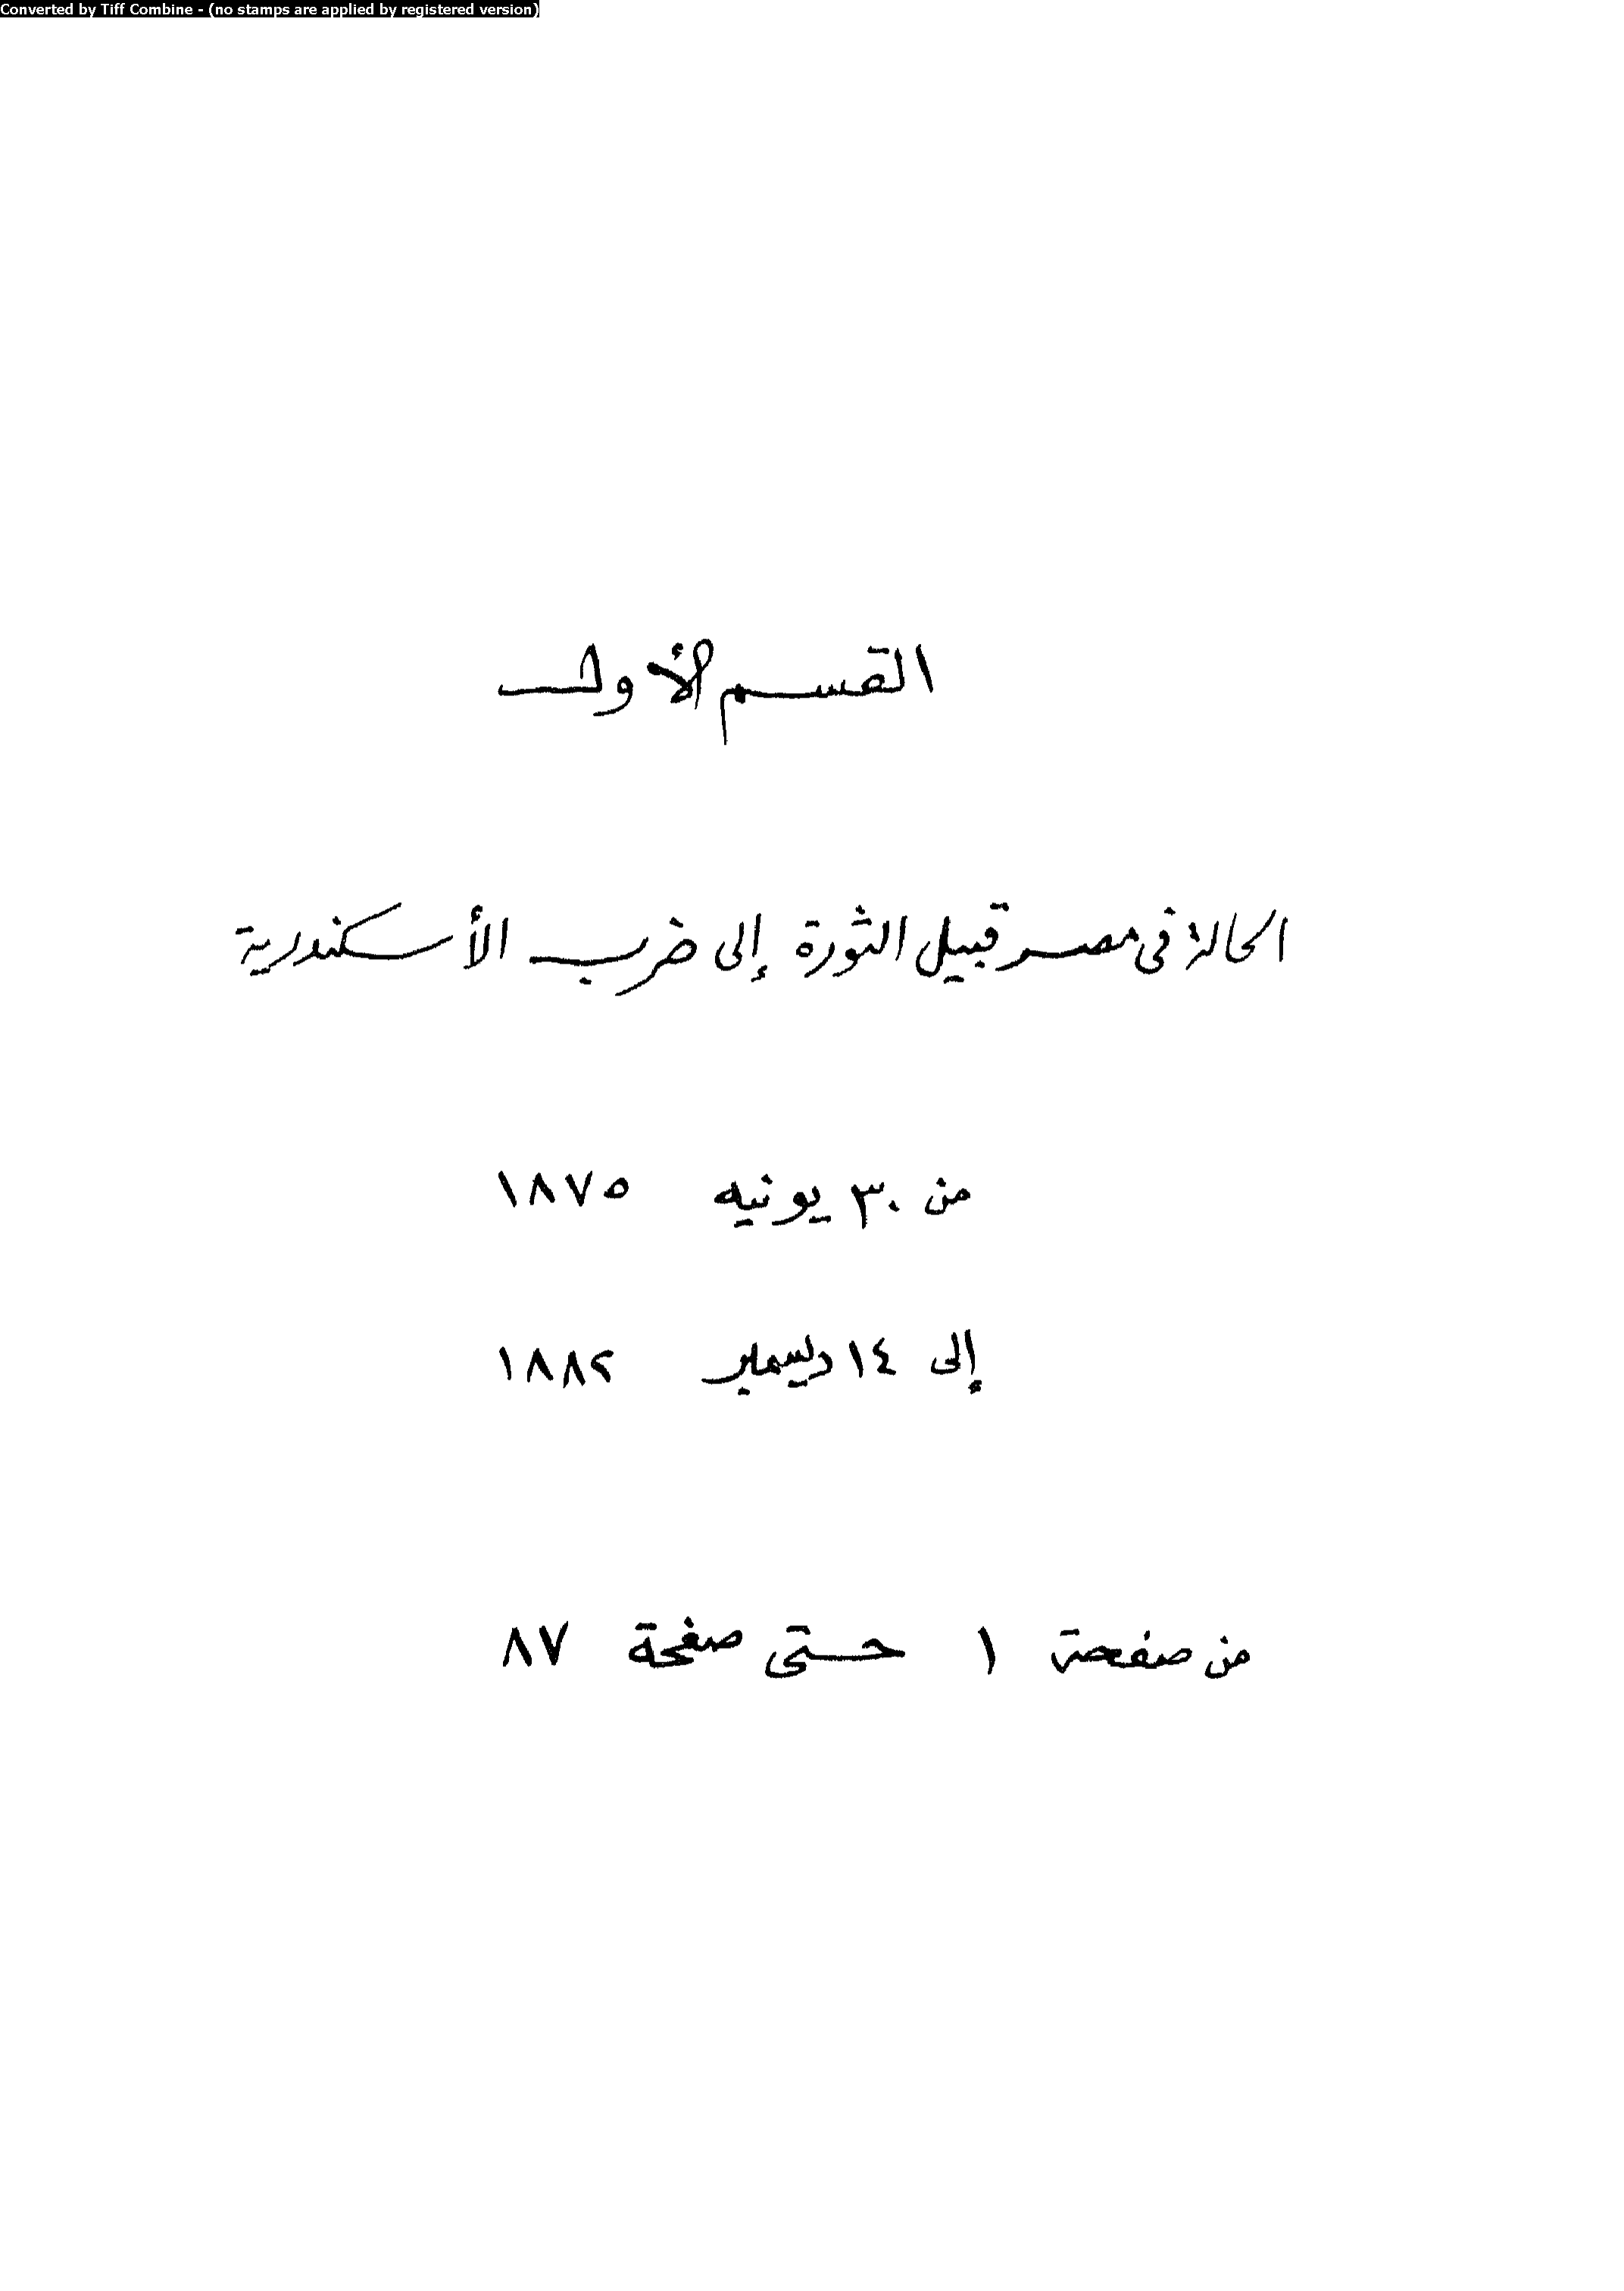 Converted by Tiff Combine - (no stamps are applied by registered version)
القسم الأول
الحالة فى مصر قبيل الثورة إلى ضرب الأسكندرية
من ٣٠ يونيه ١٨٧٥
إلى ١٤ ديسمبر ١٨٨٢
من صفحة ١ حتى صفحة ٨٧